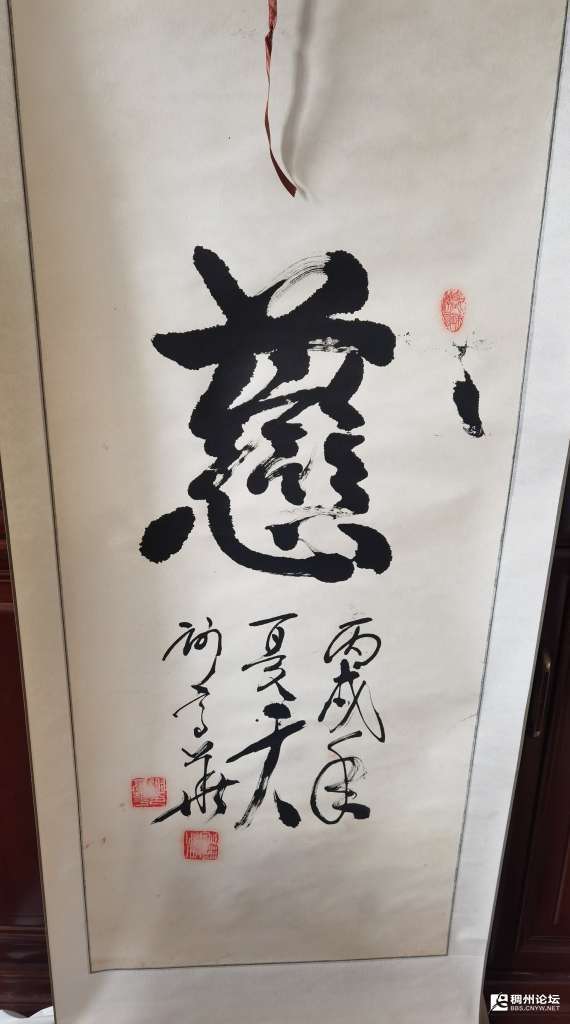 慈
丙戌年
夏天
谢高華
稠州论坛
BBS.CNYW.NET